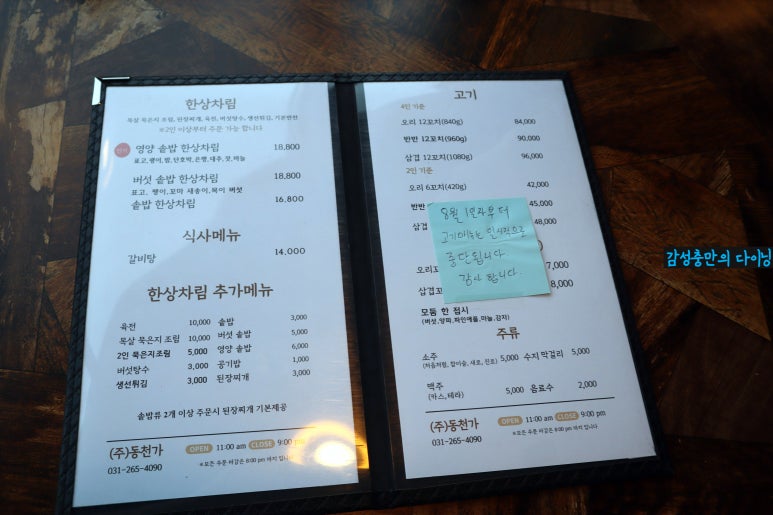 한상차림
목살 묵은지 조림, 된장찌개, 육전, 버섯탕수, 생선튀김, 기본반찬
※2인 이상부터 주문 가능 합니다
영양 솥밥 한상차림 18,800
표고, 팽이, 밤, 단호박, 은행, 대추, 잣, 마늘
버섯 솥밥 한상차림 18,800
표고, 팽이, 꼬마 새송이, 목이 버섯
솥밥 한상차림 16,800
식사메뉴
갈비탕 14,000
한상차림 추가메뉴
육전 10,000 솥밥 3,000
목살 묵은지 조림 10,000 버섯 솥밥 5,000
2인 묵은지조림 5,000 영양 솥밥 6,000
버섯탕수 3,000 공기밥 1,000
생선튀김 3,000 된장찌개 3,000
솥밥류 2개 이상 주문시 된장찌개 기본제공
(주)동천가 OPEN 11:00 am CLOSE 9:00 pm
031-265-4090 ※모든 주문 마감은 8:00 pm 까지 입니다
고기
4인 기준
오리 12꼬치(840g) 84,000
반반 12꼬치(960g) 90,000
삼겹 12꼬치(1080g) 96,000
2인 기준
오리 6꼬치(420g) 42,000
반반 45,000
삼겹 48,000
8월 1일부터
고기메뉴는 일시적으로
중단됩니다
감사 합니다.
오리꼬 7,000
삼겹꼬 8,000
모둠 한 접시
(버섯,양파,파인애플,마늘,감자)
주류
소주 5,000 수지 막걸리 5,000
(처음처럼, 참이슬, 새로, 진로)
맥주 5,000 음료수 2,000
(카스,테라)
(주)동천가 OPEN 11:00 am CLOSE 9:00 pm
031-265-4090 ※모든 주문 마감은 8:00 pm 까지 입니다
감성충만의 다이닝